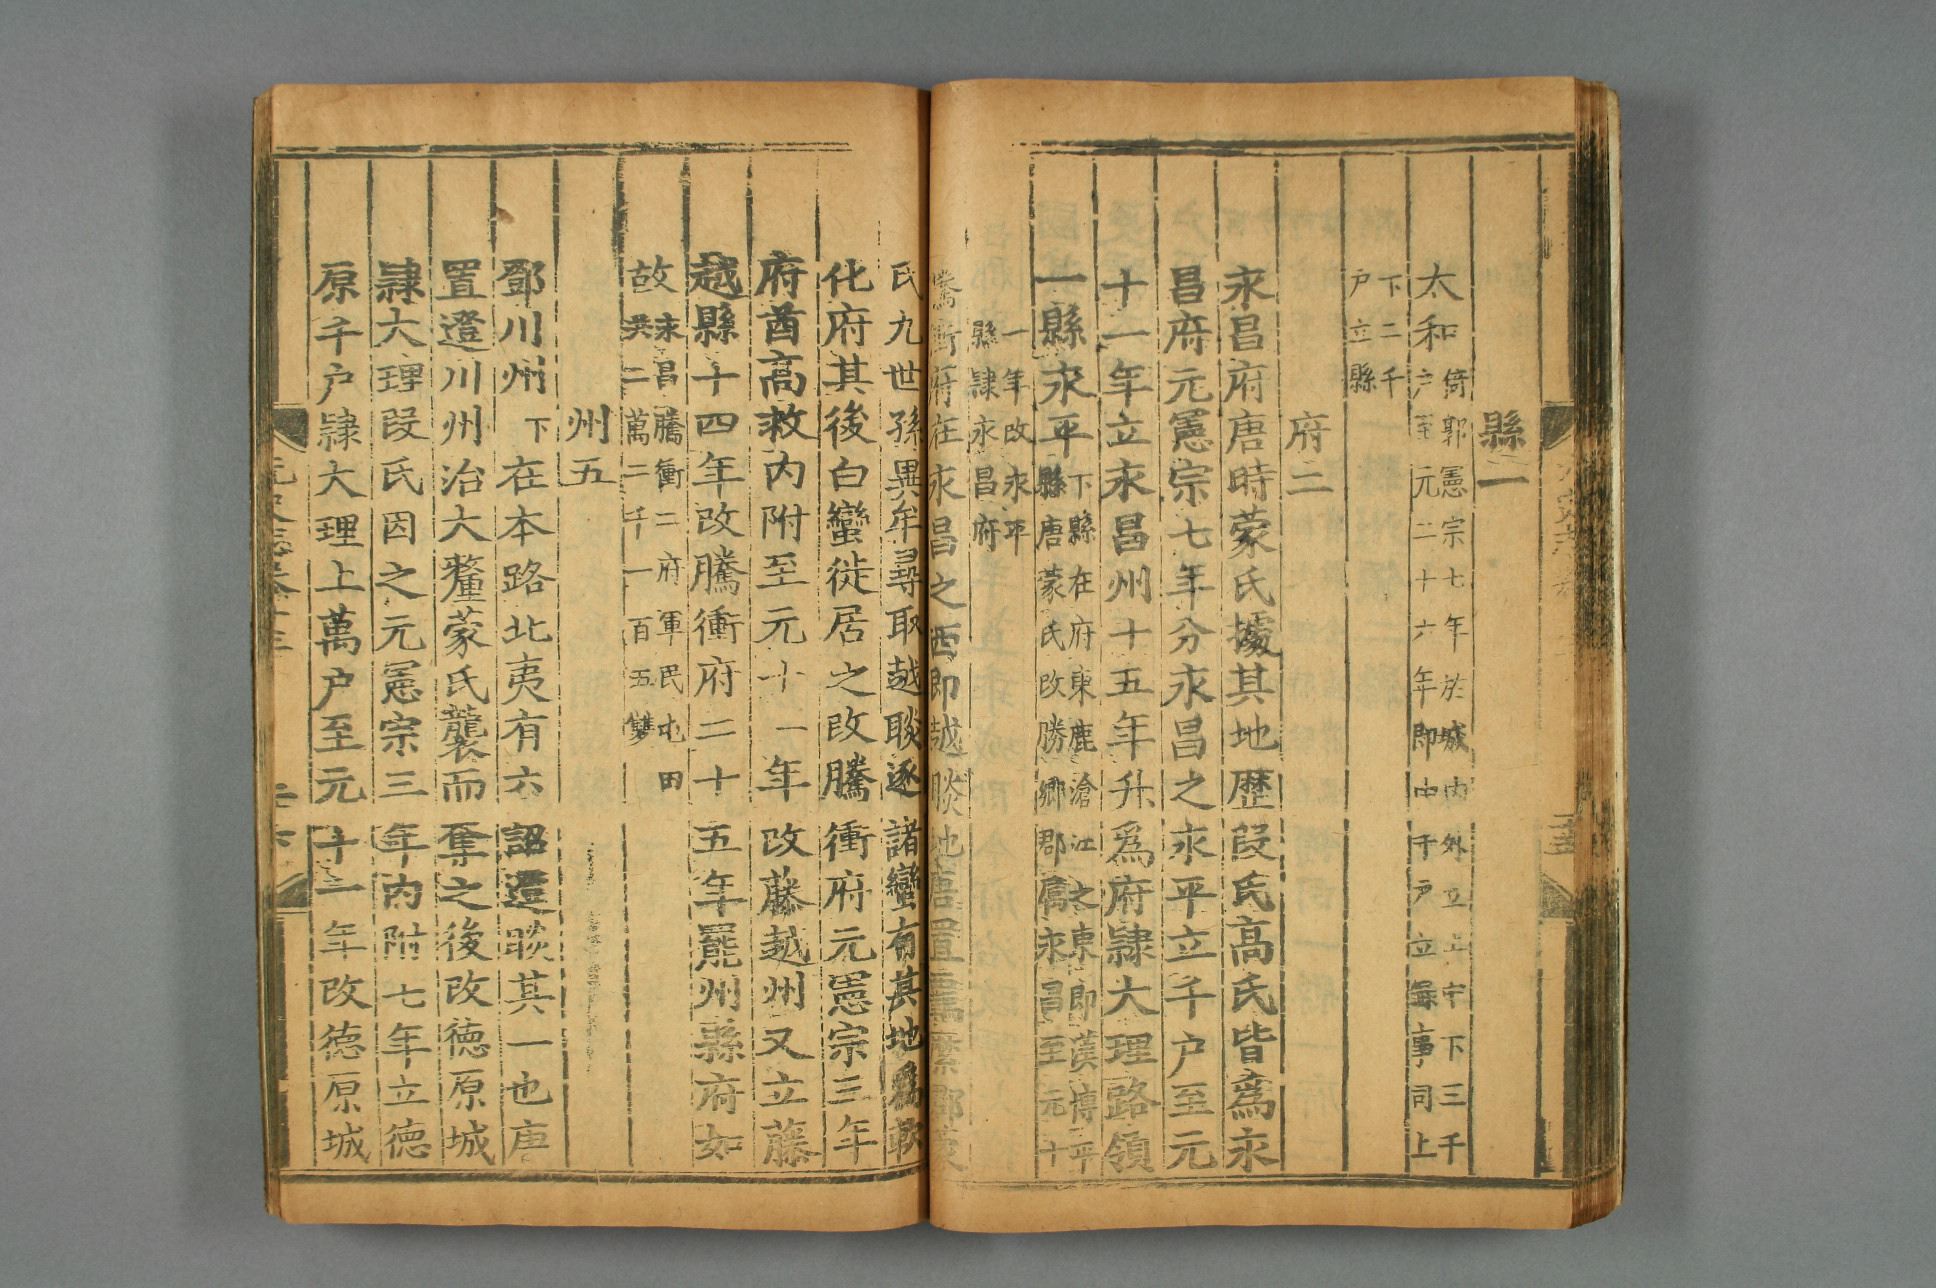 縣一
太和倚郭憲宗七年於城内外立上中下三千
户至元二十六年即中千户立錄事同上
下二千
户立縣
府二
永昌府唐時蒙氏據其地歴叚氏高氏皆爲永
昌府元憲宗七年分永昌之永平立千户至元
十一年立永昌州十五年升爲府隷大理路領
一縣永平下縣在府東鹿滄江之東即漢博平
縣唐蒙氏改勝鄉郡屬永昌至元十
一年改永平
縣隷永昌府
騰衝府在永昌之西即越睒地唐置羈縻郡蒙
氏九世孫異牟尋取越睒逐諸蠻有其地爲軟
化府其後白蠻徙居之改騰衝府元憲宗三年
府酋高救内附至元十一年改藤越州又立藤
越縣十四年改騰衝府二十五年罷州縣府如
故永昌騰衝二府軍民屯田
共二萬二千一百五雙
州五
鄧川州下在本路北夷有六詔遣睒其一也唐
置邆川州治大釐蒙氏襲而奪之後改徳原城
隷大理叚氏因之元憲宗三年内附七年立徳
原千户隷大理上萬户至元十一年改徳原城